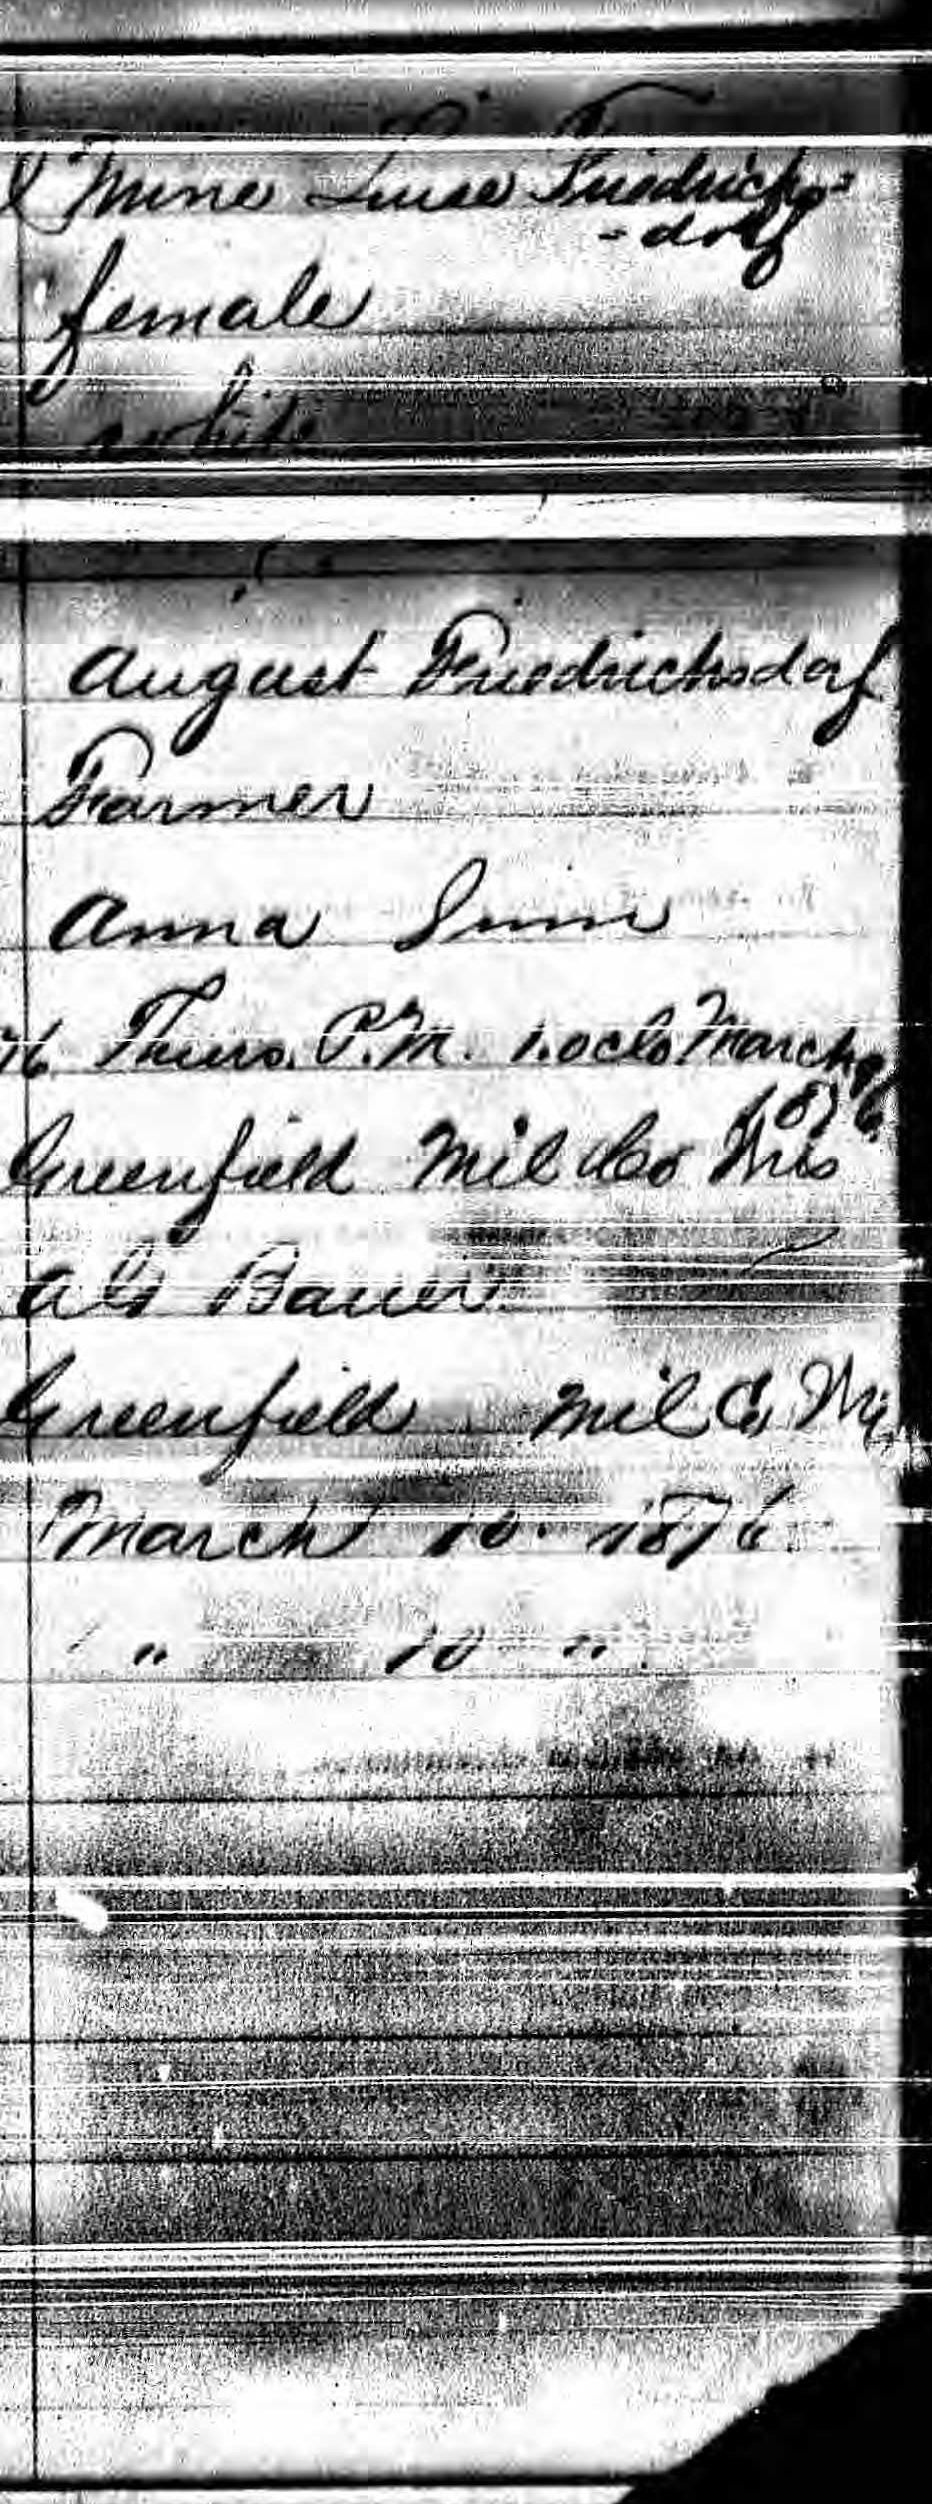 Mine Luise Friedrichs=
-dorf
female
white
August Friedrichsdorf
Farmer
Anna
Thurs. P.M. 1. oclo March 9
1876.
Greenfield Mil Co Wis
Bauer
Greenfield Mil Co Wis
March 10. 1876.
" 10 "